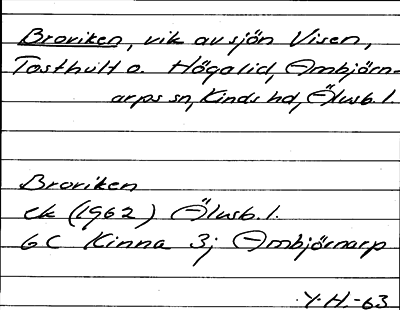 Broviken, vik av sjön Visen,
Tosthult o. Högalid, Ambjörn-
arps sn, Kinds hd, Älvsb. l.
Broviken
ek (1962) Älvsb. l.
6 C Kinna 3j Ambjörnarp
Y. H. -63